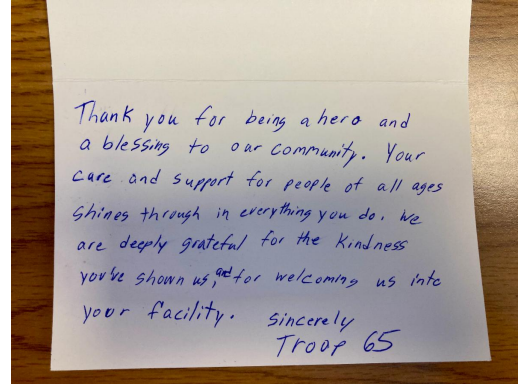 Thank you for being a hero and
a blessing to our community. Your
care and support for people of all ages
shines through in everything you do. We
are deeply grateful for the kindness
you've shown us, and for welcoming us into
your facility.
Sincerely
Troop 65